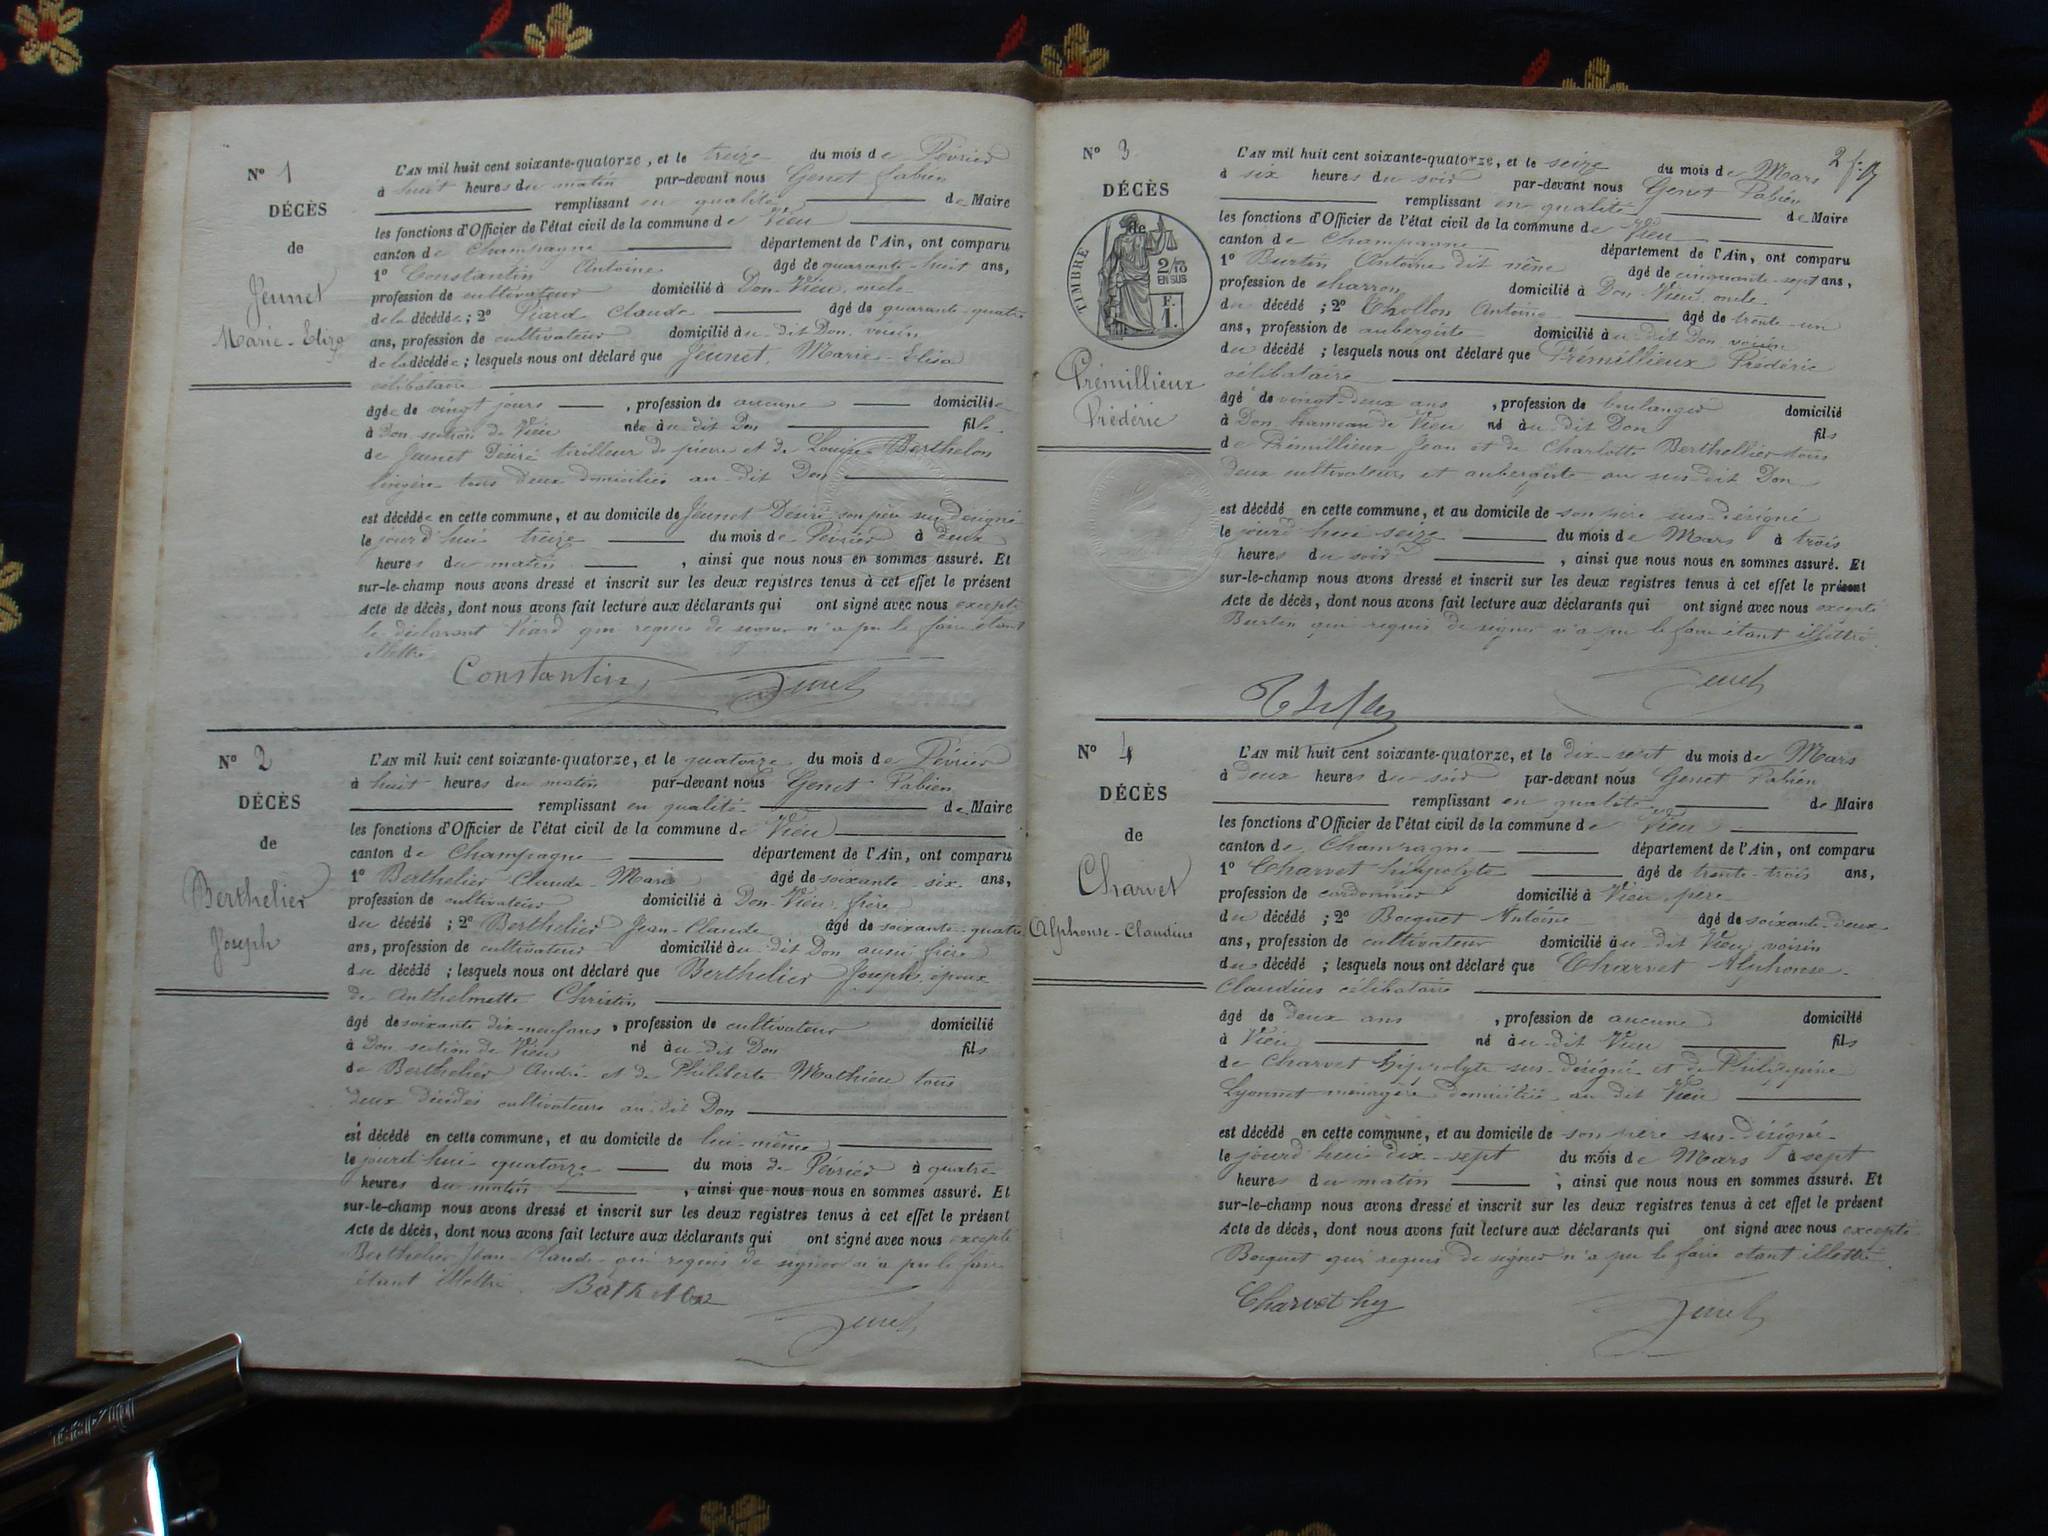 N° 1
DÉCÈS
de
Jeunet
Marie-Eliza
L'AN mil huit cent soixante-quatorze, et le treize du mois de Février
à huit heures du matin par-devant nous Genet Fabien
remplissant en qualité de Maire
les fonctions d'Officier de l'état civil de la commune de Vieu
canton de Champagne département de l'Ain, ont comparu
1° Constantin Antoine âgé de quarante-huit ans,
profession de cultivateur domicilié à Don-Vieu, oncle
de la décédée ; 2° Viard Claude âgé de quarante-quatre
ans, profession de cultivateur domicilié à u-dit Don, voisin
de la décédée ; lesquels nous ont déclaré que Jeunet, Marie-Elisa
célibataire
âgée de vingt jours , profession de aucune domiciliée
à Don section de Vieu née à u-dit Don fille
de Jeunet Désiré tailleur de pierre et de Louise Berthelon
lingère tous deux domiciliés au-dit Don
est décédée en cette commune, et au domicile de Jeunet Désiré son père sus-désigné
le jourd'hui treize du mois de Février à deux
heures du matin , ainsi que nous nous en sommes assuré. Et
sur-le-champ nous avons dressé et inscrit sur les deux registres tenus à cet effet le présent
Acte de décès, dont nous avons fait lecture aux déclarants qui ont signé avec nous excepté
le déclarant Viard qui requis de signer n'a pu le faire étant
illettré
Constantin Genet
N° 2
DÉCÈS
de
Berthelier
Joseph
L'AN mil huit cent soixante-quatorze, et le quatorze du mois de Février
à huit heures du matin par-devant nous Genet Fabien
remplissant en qualité de Maire
les fonctions d'Officier de l'état civil de la commune de Vieu
canton de Champagne département de l'Ain, ont comparu
1° Berthelier Claude-Marie âgé de soixante-six ans,
profession de cultivateur domicilié à Don-Vieu, frère
du décédé ; 2° Berthelier Jean-Claude âgé de soixante-quatre
ans, profession de cultivateur domicilié à u-dit Don aussi frère
du décédé ; lesquels nous ont déclaré que Berthelier Joseph, époux
de Anthelmette Christin
âgé de soixante dix-neuf ans, profession de cultivateur domicilié
à Don section de Vieu né à u-dit Don fils
de Berthelier André et de Philiberte Mathieu tous
deux décédés cultivateurs au-dit Don
est décédé en cette commune, et au domicile de lui-même
le jourd'hui quatorze du mois de Février à quatre
heures du matin , ainsi que nous nous en sommes assuré. Et
sur-le-champ nous avons dressé et inscrit sur les deux registres tenus à cet effet le présent
Acte de décès, dont nous avons fait lecture aux déclarants qui ont signé avec nous excepté
Berthelier Jean-Claude qui requis de signer n'a pu le faire
étant illettré
Genet
N° 3
DÉCÈS
de
TIMBRE
2/10
EN SUS
F.
1.
Prémillieux
Frédéric
L'AN mil huit cent soixante-quatorze, et le seize du mois de Mars
à six heures du soir par-devant nous Genet Fabien
remplissant en qualité de Maire
les fonctions d'Officier de l'état civil de la commune de Vieu
canton de Champagne département de l'Ain, ont comparu
1° Burtin Antoine dit âgé de cinquante-sept ans,
profession de charron domicilié à Don-Vieu, oncle
du décédé ; 2° Chollon Antoine âgé de trente-un
ans, profession de aubergiste domicilié à u-dit Don voisin
du décédé ; lesquels nous ont déclaré que Prémillieux Frédéric
célibataire
âgé de vingt-deux ans , profession de boulanger domicilié
à Don hameau de Vieu né à u-dit Don fils
de Prémillieux Jean et de Charlotte Berthellier tous
deux cultivateurs et aubergiste au sus-dit Don
est décédé en cette commune, et au domicile de son père sus-désigné
le jourd'hui seize du mois de Mars à trois
heures du soir , ainsi que nous nous en sommes assuré. Et
sur-le-champ nous avons dressé et inscrit sur les deux registres tenus à cet effet le présent
Acte de décès, dont nous avons fait lecture aux déclarants qui ont signé avec nous excepté
Burtin qui requis de signer n'a pu le faire étant illettré
Genet
N° 4
DÉCÈS
de
Charvet
Alphonse-Claudius
L'AN mil huit cent soixante-quatorze, et le dix-sept du mois de Mars
à deux heures du soir par-devant nous Genet Fabien
remplissant en qualité de Maire
les fonctions d'Officier de l'état civil de la commune de Vieu
canton de Champagne département de l'Ain, ont comparu
1° Charvet hippolyte âgé de trente-trois ans,
profession de cordonnier domicilié à Vieu, père
du décédé ; 2° Bocquet Antoine âgé de soixante-deux
ans, profession de cultivateur domicilié à u-dit Vieu, voisin
du décédé ; lesquels nous ont déclaré que Charvet Alphonse-
Claudius célibataire
âgé de deux ans , profession de aucune domicilié
à Vieu né à u-dit Vieu fils
de Charvet hippolyte sus-désigné et de Philippine
Lyonnet ménagère domiciliée au-dit Vieu
est décédé en cette commune, et au domicile de son père sus-désigné
le jourd'hui dix-sept du mois de Mars à sept
heures du matin , ainsi que nous nous en sommes assuré. Et
sur-le-champ nous avons dressé et inscrit sur les deux registres tenus à cet effet le présent
Acte de décès, dont nous avons fait lecture aux déclarants qui ont signé avec nous excepté
Bocquet qui requis de signer n'a pu le faire étant illettré
Charvet hy Genet